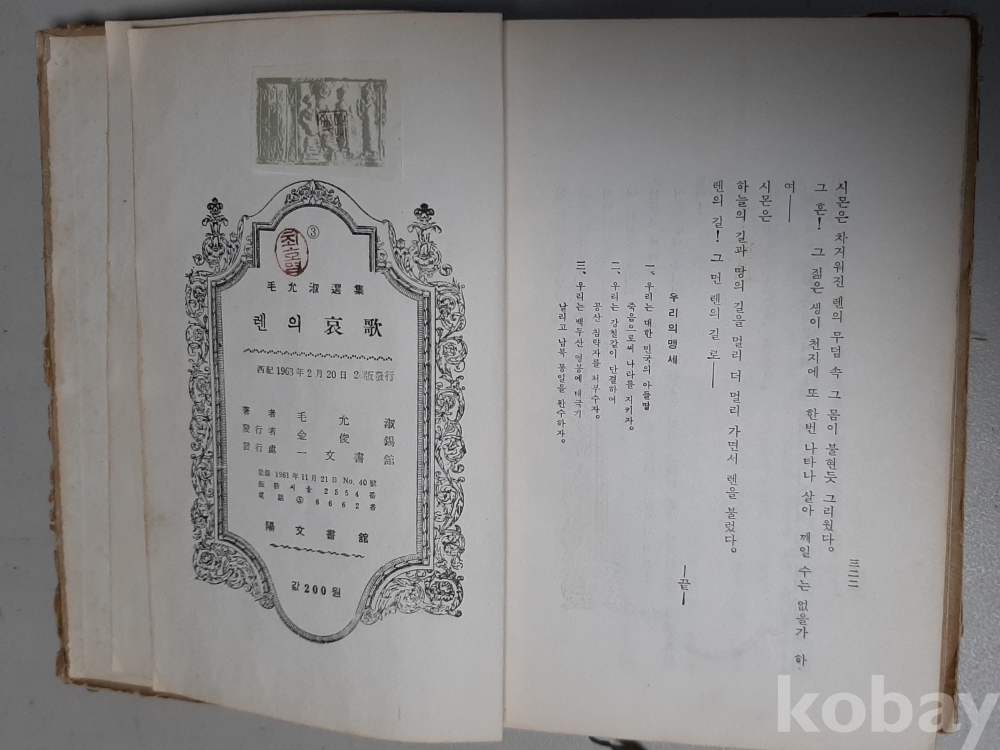 ③
최호열
毛允淑選集
렌의 哀歌
西紀 1963年 2月 20日 2版發行
著者 毛允淑
發行者 金俊錫
發行處 一文書館
登錄 1961年 11月 21日 No. 40號
振替 서울 2554番
電話 ⑤ 6662番
陽文書館
값 200원
시몬은 차거워진 렌의 무덤 속 그 몸이 불현듯 그리웠다.
그 혼! 그 젊은 생이 천지에 또 한번 나타나 살아 깨일 수는 없을가 하
여──
시몬은
하늘의 길과 땅의 길을 멀리 더 멀리 가면서 렌을 불렀다.
렌의 길! 그 먼 렌의 길로──
—끝—
우리의 맹세
一、우리는 대한 민국의 아들딸
죽음으로써 나라를 지키자.
二、우리는 강철같이 단결하여
공산 침략자를 쳐부수자.
三、우리는 백두산 영봉에 태극기
날리고 남북 통일을 완수하자.
三二二
kobay